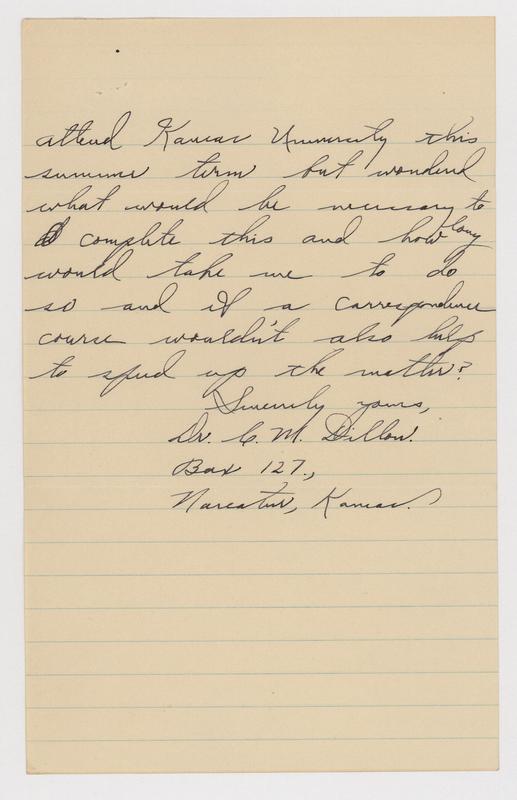 attend Kansas University this
summer term but wondered
what would be necessary to
complete this and how long
would take me to do
so and if a correspondence
course wouldn't also help
to speed up the matter?
Sincerely yours,
Dr. C. M. Dillow.
Box 127.,
Norcatur, Kansas.